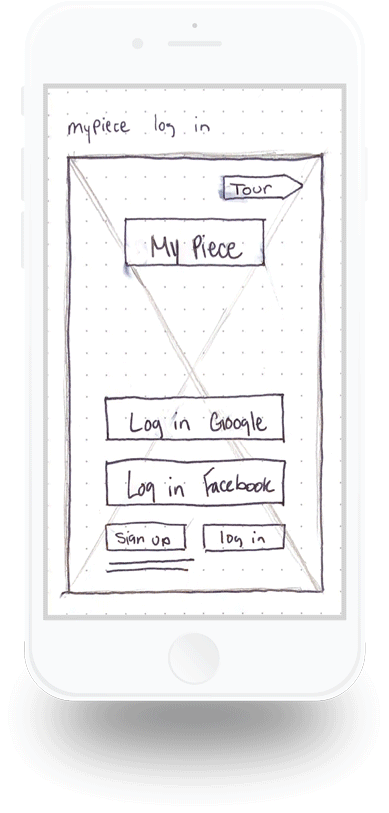 mypiece log in
Tour
My Piece
Log in Google
Log in Facebook
Sign up log in